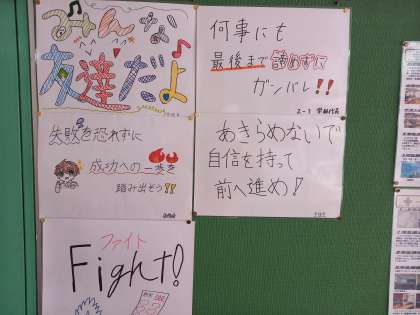 みんな
友達だよ
何事にも
最後まで諦めずに
ガンバレ!!
2-1 学級代表
失敗を恐れずに
成功への一歩を
踏み出そう!!
あきらめないで
自信を持って
前へ進め!
ファイト
Fight!